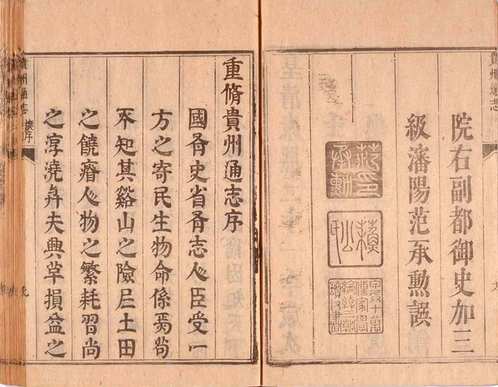 貴州通志
院右副都御史加三
級瀋陽范承勲譔
重脩貴州通志序
國有史省有志人臣受一
方之寄民生物命係焉苟
不知其谿山之險戹土田
之饒瘠人物之繁耗習尚
之淳澆與夫興革損益之
貴州通志 序